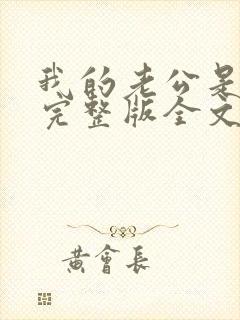 我的老公是
完整版全文
黄會長